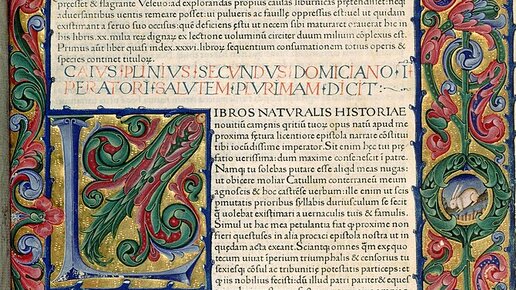 presset & flagrante Veleuo: ad explorandas propius cautas liburnicas pertendunt: inde
adueniantibus uentis remeare posset: ut pulueris ac fauille oppressus est: uel ut quidam
existimant a seruo suo occisus: que deficiens estu ut necem sibi maturaret oraueratr hic in
his libris .xx. milia rerũ dignarz ex lectione uoluminũ circiter duum milium cõplexus est.
Primus aũt liber quasi index .xxxvi. librorz sequentium consumationem totius operis &
species continet titulorz.
CAIVS PLINIVS SECVNDVS DOMICIANO IM
PERATORI SALVTEM PLVRIMAM DICIT
LIBROS NATVRALIS HISTORIAE
nouitiũ camenis qritiũ tuorz opus natũ apud me
proxima fetura licentiore epistola narrare cõstitui
tibi iocundissime imperator. Sit enim hec tui pre
fatio uerissima: dum maxime consenescit i patre.
Namqz tu solebas putare esse aliqd meas nugas:
ut obicere moliar Catullum conterraneũ meum
agnoscis & hoc castrẽse uerbum: ille enim ut scis
pmutatis prioribus syllabis duriusculum se fecit
q̃ uolebat existimari a uernaculis tuis & famulis.
Simul ut hac mea petulantia fiat q̃ proxime non
fieri questus es in alia procaci epistola nostra: ut in
quedam acta exeant. Sciantqz omnes q̃m exequo
tecum uiuat iperium triumphalis & censorius tu
sexiesqz cõsul ac tribunitie potestatis particeps: et